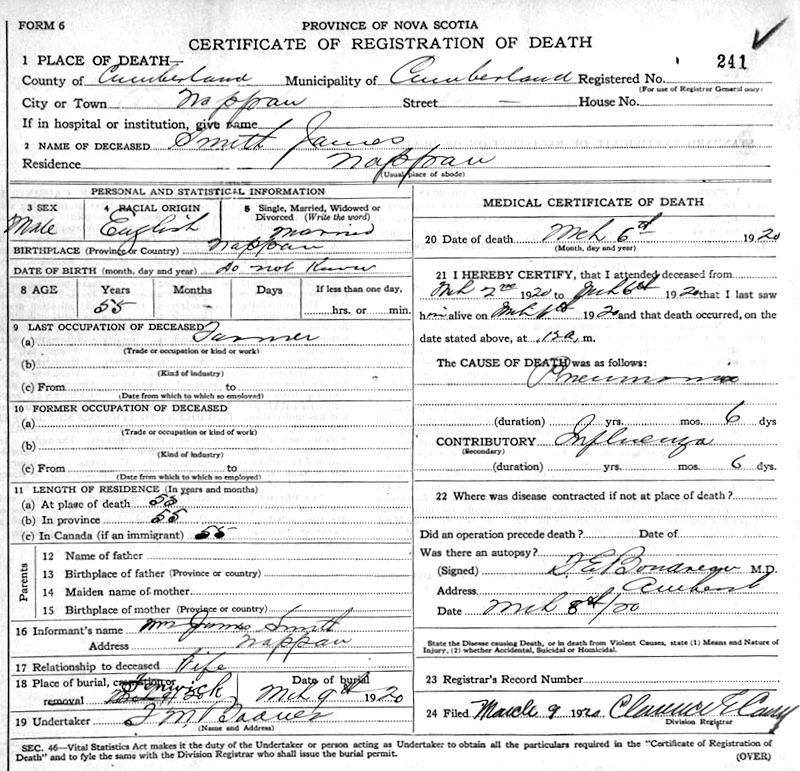 FORM 6
PROVINCE OF NOVA SCOTIA
CERTIFICATE OF REGISTRATION OF DEATH
241
1 PLACE OF DEATH—
County of Cumberland Municipality of Cumberland Registered No.
(For use of Registrar General only)
City or Town Nappan Street — House No.
If in hospital or institution, give name
2 NAME OF DECEASED Smith James
Residence Nappan
(Usual place of abode)
PERSONAL AND STATISTICAL INFORMATION
3 SEX Male
4 RACIAL ORIGIN English
5 Single, Married, Widowed or Divorced (Write the word) Married
BIRTHPLACE (Province or Country) Nappan
DATE OF BIRTH (month, day and year) do not know
8 AGE Years Months Days If less than one day,
55 hrs. or min.
9 LAST OCCUPATION OF DECEASED
(a) Farmer
(Trade or occupation or kind or work)
(b)
(Kind of industry)
(c) From to
(Date from which to which so employed)
10 FORMER OCCUPATION OF DECEASED
(a)
(Trade or occupation or kind of work)
(b)
(Kind of industry)
(c) From to
(Date from which to which so employed)
11 LENGTH OF RESIDENCE (In years and months)
(a) At place of death 55
(b) In province 55
(c) In Canada (if an immigrant) 55
Parents
12 Name of father
13 Birthplace of father (Province or country)
14 Maiden name of mother
15 Birthplace of mother (Province or country)
16 Informant's name Mrs James Smith
Address Nappan
17 Relationship to deceased Wife
18 Place of burial, cremation or removal Fenwick
Date of burial Mch 9th 1920
19 Undertaker
(Name and Address)
MEDICAL CERTIFICATE OF DEATH
20 Date of death Mch 6th 1920
(Month, day and year)
21 I HEREBY CERTIFY, that I attended deceased from
Mch 2nd 1920 to Mch 6th 1920 that I last saw
him alive on Mch 1920 and that death occurred, on the
date stated above, at a, m.
The CAUSE OF DEATH was as follows:
Pneumonia
(duration) yrs. mos. 6 dys
CONTRIBUTORY Influenza
(Secondary)
(duration) yrs. mos. 6 dys.
22 Where was disease contracted if not at place of death?
Did an operation precede death? Date of
Was there an autopsy?
(Signed) D. E. M.D.
Address Amherst
Date Mch 8th/20
State the Disease causing Death, or in death from Violent Causes, state (1) Means and Nature of
Injury, (2) whether Accidental, Suicidal or Homicidal.
23 Registrar's Record Number
24 Filed March 9 1920 Clarence E
Division Registrar
SEC. 46—Vital Statistics Act makes it the duty of the Undertaker or person acting as Undertaker to obtain all the particulars required in the "Certificate of Registration of
Death" and to fyle the same with the Division Registrar who shall issue the burial permit.
(OVER)